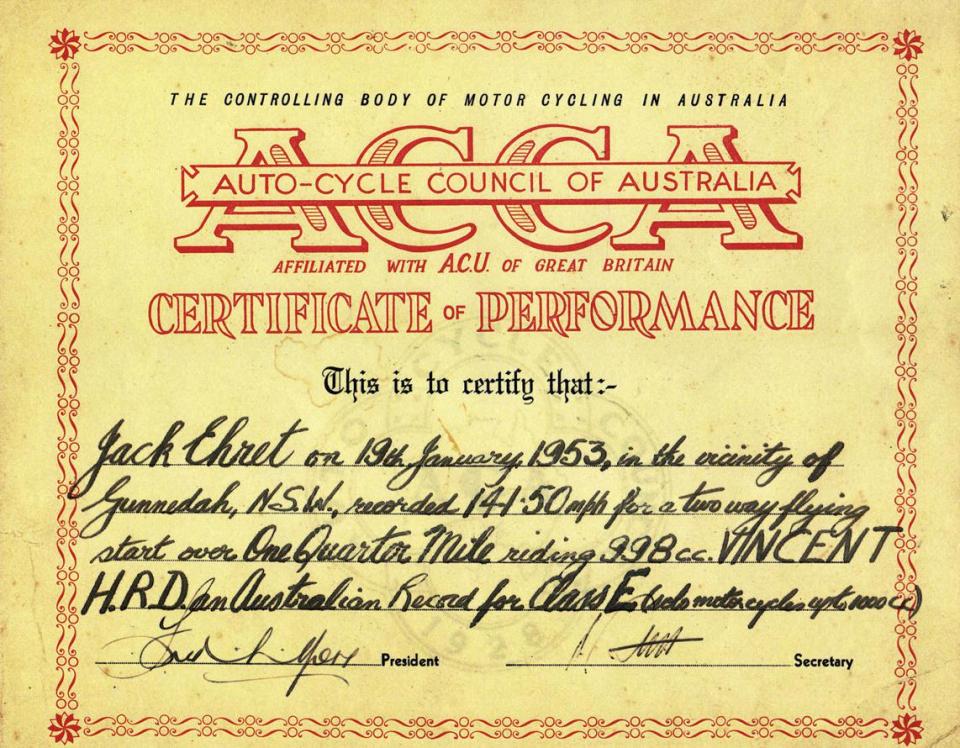 THE CONTROLLING BODY OF MOTOR CYCLING IN AUSTRALIA
ACCA
AUTO-CYCLE COUNCIL OF AUSTRALIA
AFFILIATED WITH A.C.U. OF GREAT BRITAIN
CERTIFICATE OF PERFORMANCE
This is to certify that:-
Jack Ehret on 19th January, 1953, in the vicinity of
Gunnedah, N.S.W., recorded 141·50 mph for a two way flying
start over One Quarter Mile riding 998 cc. VINCENT
H.R.D. an Australian Record for Class E (solo motor cycles upto 1000 cc)
President
Secretary
1928